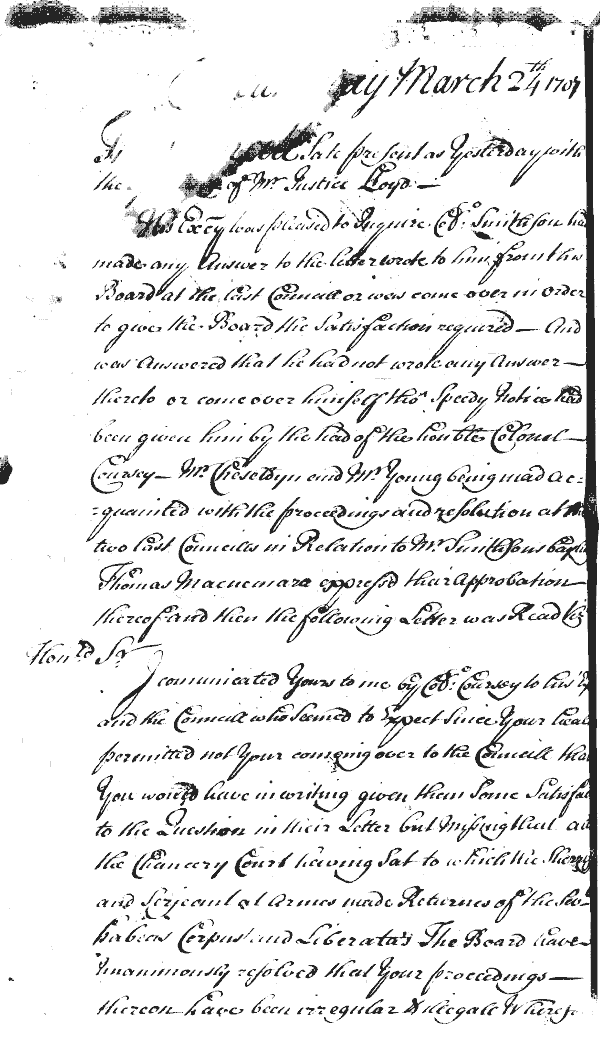 ay March 24th 1707
Sate present as Yesterday with
the of Mr Justice Lloyd —
His Excy was pleased to Inquire Coll. Smithson had
made any Answer to the letter wrote to him from this
Board at the last Councill or was come over in order
to give the Board the Satisfaction required — And
was Answered that he had not wrote any Answer —
thereto or come over himself tho' Speedy Notice had
been given him by the hand of the honble Colonel —
Coursey — Mr Cheseldyn and Mr Young being made ac=
=quainted with the proceedings and resolution at the
two last Councills in Relation to Mr Smithsons
Thomas Macnemara expressd their Approbation
thereof and then the following Letter was Read Viz
Honrd Sr
I comunicated Yours to me by Coll. Coursey to his Ex
and the Councill who Seemed to Expect Since Your heal
permitted not Your comeing over to the Councill that
You would have in writing given them Some Satisfac
to the Question in their Letter but Missing that and
the Chancery Court having Sat to which the Sherriff
and Serjeant at Armes made Returnes of the Sev
habeas Corpus and Liberata's The Board have
Unanimously resolved that Your proceedings —
thereon have been irregular & illegall Wheref